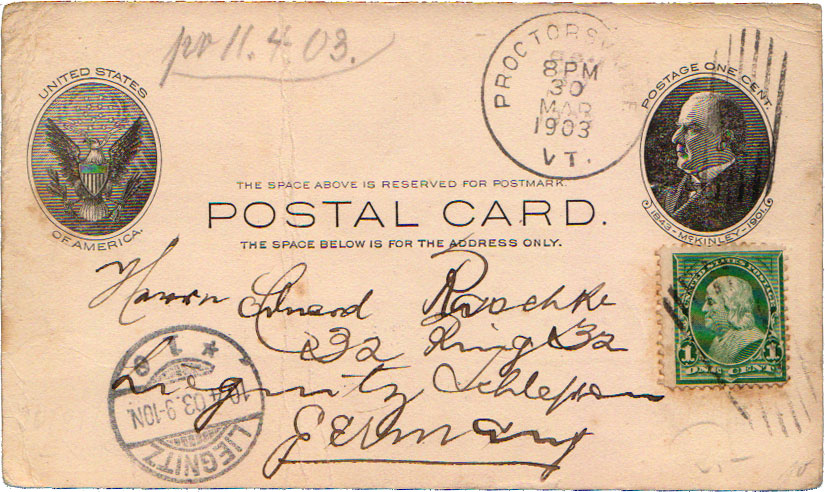 pr 11.4.03.
UNITED STATES
OF AMERICA.
PROCTORSVILLE
8 PM
30
MAR
1903
VT.
POSTAGE ONE CENT.
1843-McKINLEY-1901.
THE SPACE ABOVE IS RESERVED FOR POSTMARK.
POSTAL CARD.
THE SPACE BELOW IS FOR THE ADDRESS ONLY.
UNITED STATES POSTAGE
1 1
ONE CENT
Herrn Eduard Raschke
32 Ring 32
Liegnitz Schlesien
Germany
10.4.03.9-10N.
LIEGNITZ